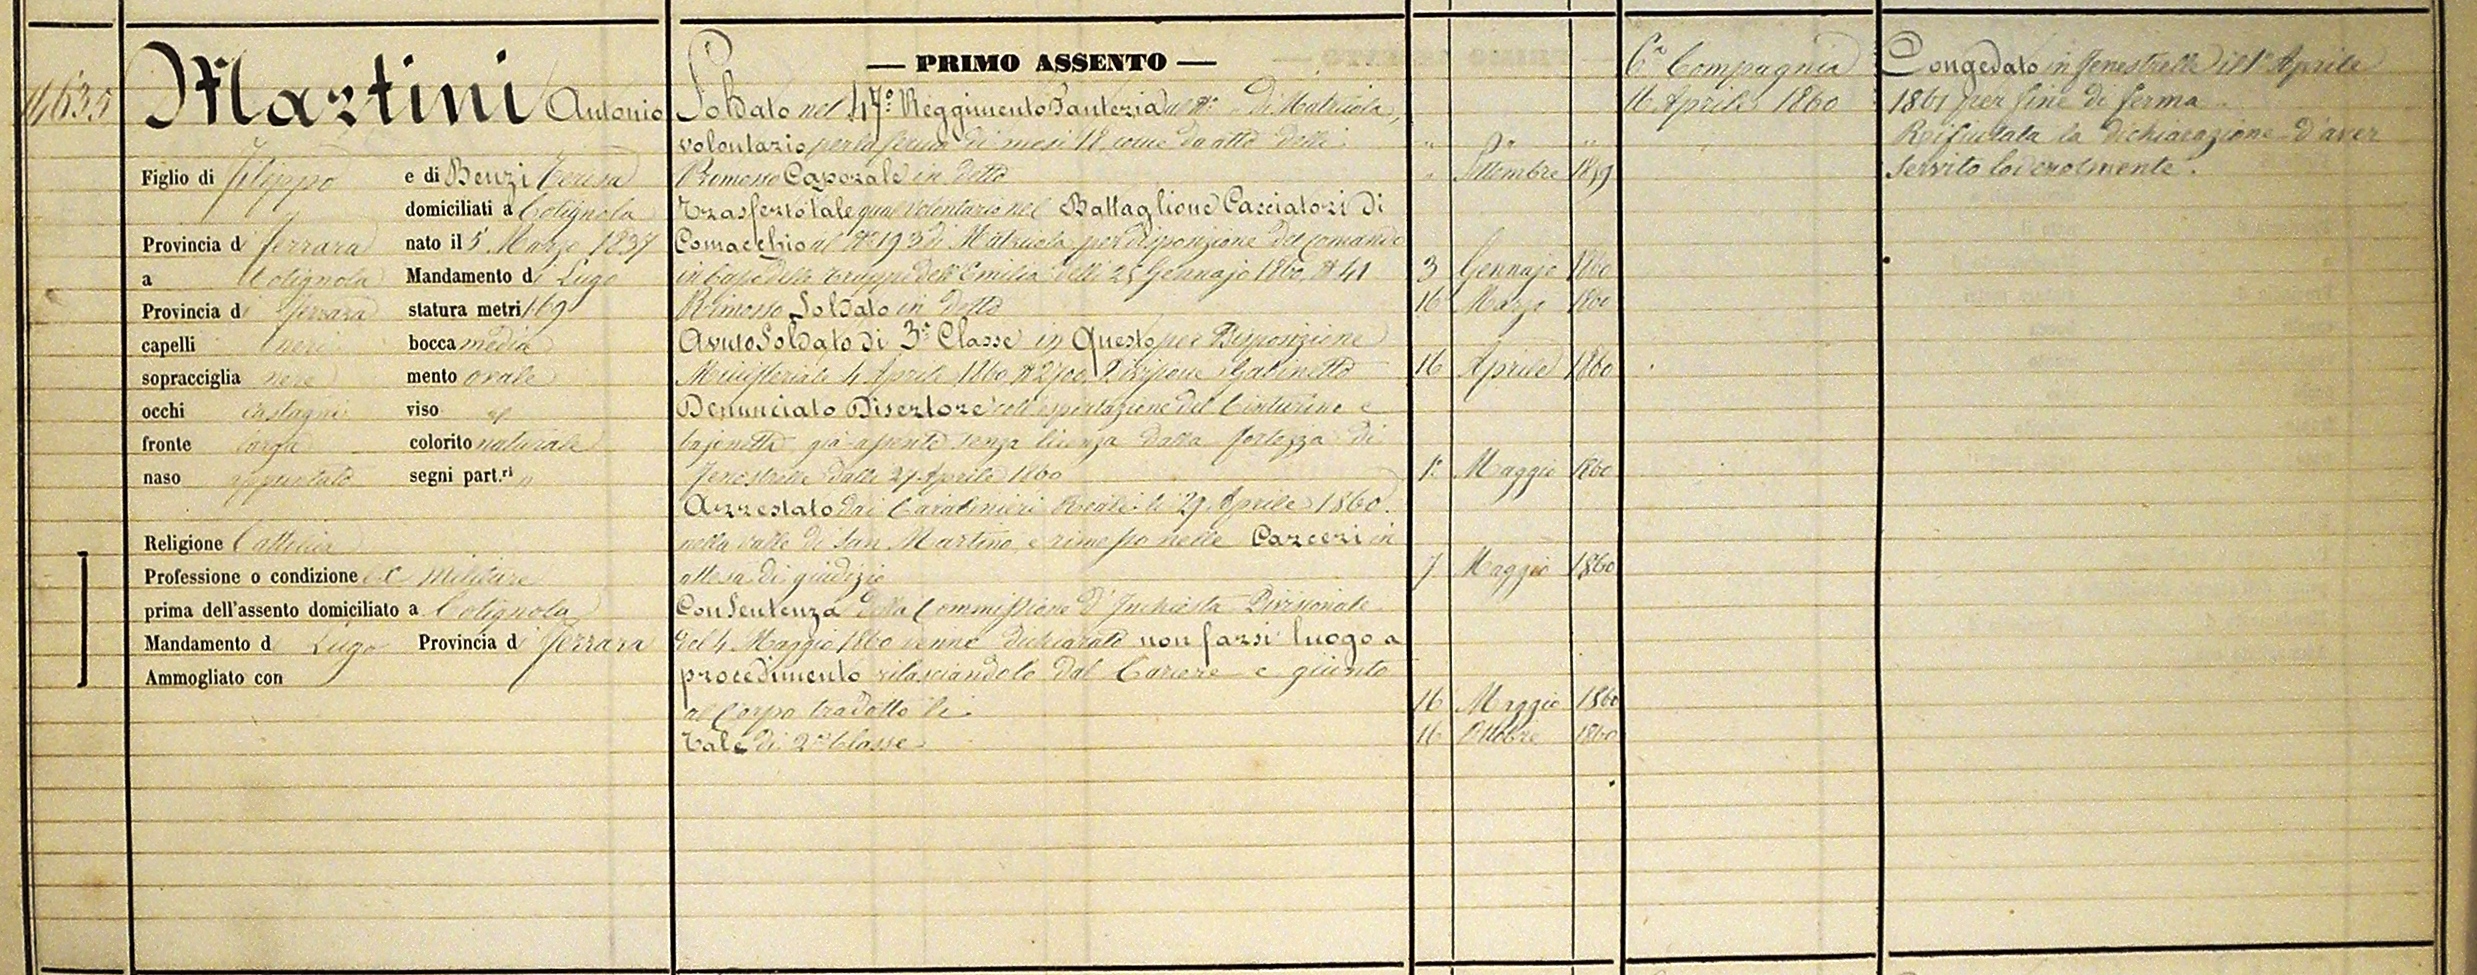 14635
Martini Antonio
Figlio di Filippo e di Benzi Teresa
domiciliati a Cotignola
Provincia di Ferrara nato il 5 Marzo 1837
a Cotignola Mandamento di Lugo
Provincia di Ferrara statura metri 1.69
capelli neri bocca media
sopracciglia nere mento ovale
occhi castagni viso
fronte larga colorito naturale
naso appuntato segni part.ri "
Religione Cattolica
Professione o condizione ex militare
prima dell'assento domiciliato a Cotignola
Mandamento di Lugo Provincia di Ferrara
Ammogliato con
— PRIMO ASSENTO —
Soldato nel 47º Reggimento Fanteria al Nº " di Matricola,
volontario per la ferma di mesi 18 come da atto delli " " "
Promosso Caporale in detto " Settembre 1859
Trasferto Tale qual volontario nel Battaglione Cacciatori di
Comacchio al Nº 193 di Matricola per disposizione del Comando
in Capo delle truppe dell'Emilia delli 25 Gennajo 1860, Nº 41 3 Gennajo 1860
Rimosso Soldato in detto 16 Marzo 1860
Avuto Soldato di 3ª Classe in Questo per Disposizione
Ministeriale 4 Aprile 1860 Nº 2700, Divisione Gabinetto 16 Aprile 1860
Denunciato Disertore coll'esportazione del Cinturino e
bajonetta già assente senza licenza dalla fortezza di
Fenestrelle dalli 27 Aprile 1860 1º Maggio 1860
Arrestato dai Carabinieri Reali li 29 Aprile 1860
nella valle di San Martino, e rimesso nelle Carceri in
attesa di giudizio 7 Maggio 1860
Con Sentenza della Commissione d'Inchiesta Divisionale
del 4 Maggio 1860 venne dichiarato non farsi luogo a
procedimento rilasciandolo dal Carcere e giunto
al Corpo tradotto li 16 Maggio 1860
Tale di 2ª Classe 16 Ottobre 1860
6ª Compagnia
16 Aprile 1860
Congedato in Fenestrelle il 1º Aprile
1861 per fine di ferma.
Rifiutata la dichiarazione d'aver
servito lodevolmente.